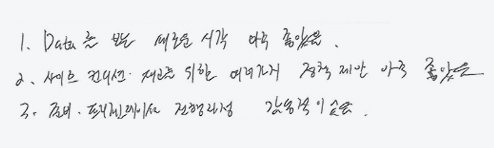 1. Data를 보는 새로운 시각 아주 좋았음.
2. 사이트 컨디션· 제고를 위한 여러가지 정책 제안 아주 좋았음
3. 준비· 프리젠테이션 진행과정 감동적이었음.